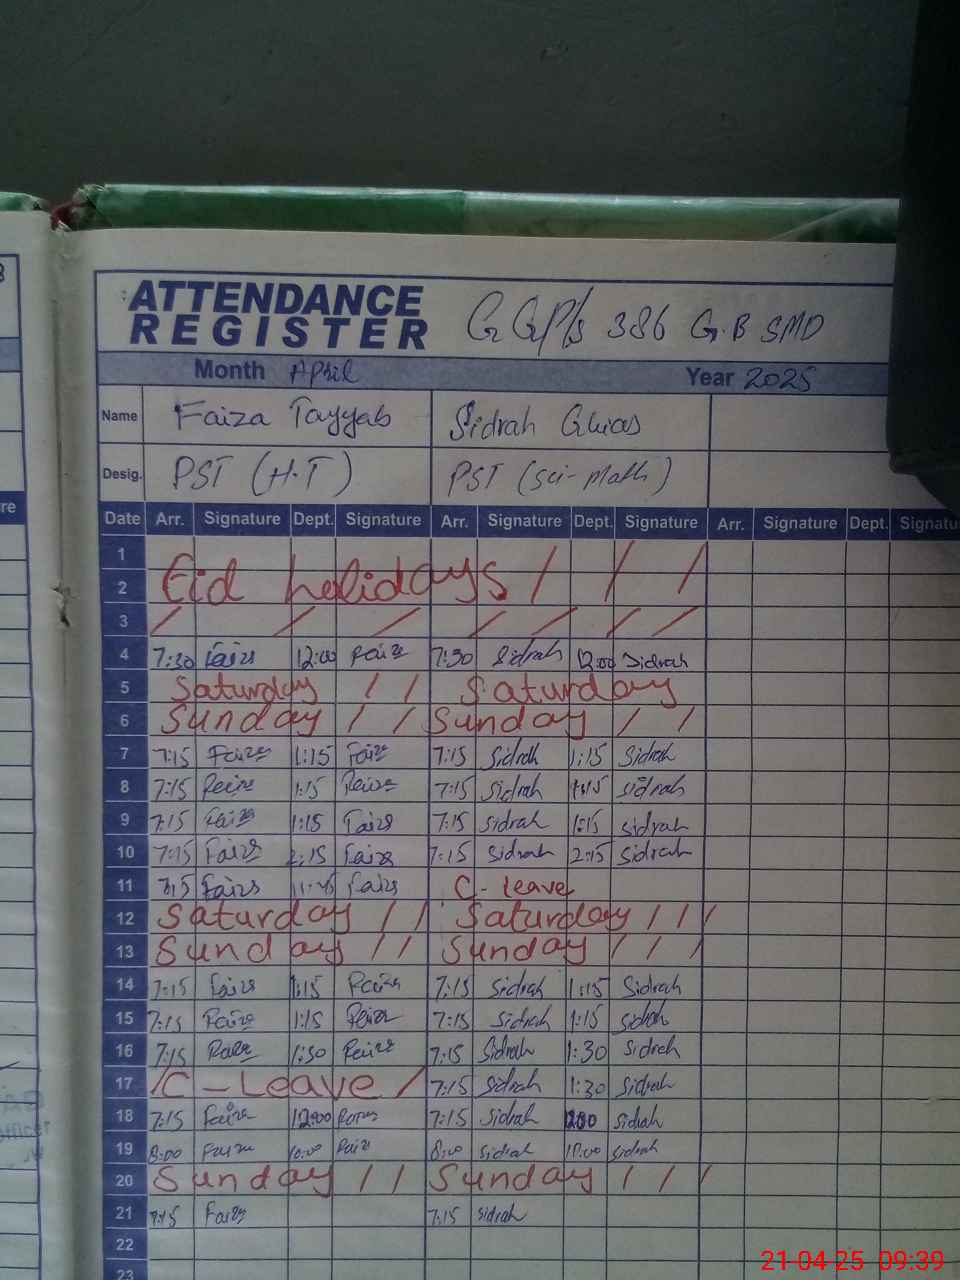 ATTENDANCE
REGISTER G GP/s 386 G.B SMD
Month April Year 2025
Name Faiza Tayyab Sidrah Ghias
Desig. PST (H.T) PST (Sci-Math)
re Date Arr. Signature Dept. Signature Arr. Signature Dept. Signature Arr. Signature Dept. Signatu
1
2 Eid holidays / / /
3 / / / / / / /
4 7:30 Faiza 12:00 Faiza 7:30 Sidrah 12:00 Sidrah
5 Saturday / / Saturday
6 Sunday / / Sunday / /
7 7:15 Faiza 1:15 Faiza 7:15 Sidrah 1:15 Sidrah
8 7:15 Faiza 1:15 Faiza 7:15 Sidrah 1:15 Sidrah
9 7:15 Faiza 1:15 Faiza 7:15 Sidrah 1:15 Sidrah
10 7:15 Faiza 2:15 Faiza 7:15 Sidrah 2:15 Sidrah
11 Faiza Faiza C- leave
12 Saturday / / Saturday / / /
13 Sunday / / Sunday / / /
14 7:15 Faiza 1:15 Faiza 7:15 Sidrah 1:15 Sidrah
15 7:15 Faiza 1:15 Faiza 7:15 Sidrah 1:15 Sidrah
16 7:15 Faiza 1:30 Faiza 7:15 Sidrah 1:30 Sidrah
17 / C - Leave / 7:15 Sidrah 1:30 Sidrah
18 7:15 Faiza 12:00 Faiza 7:15 Sidrah 12:00 Sidrah
19 8:00 Faiza 10:00 Faiza 8:00 Sidrah 10:00 Sidrah
20 Sunday / / Sunday / / /
21 7:15 Faiza 7:15 Sidrah
22
23
21-04-25 09:39